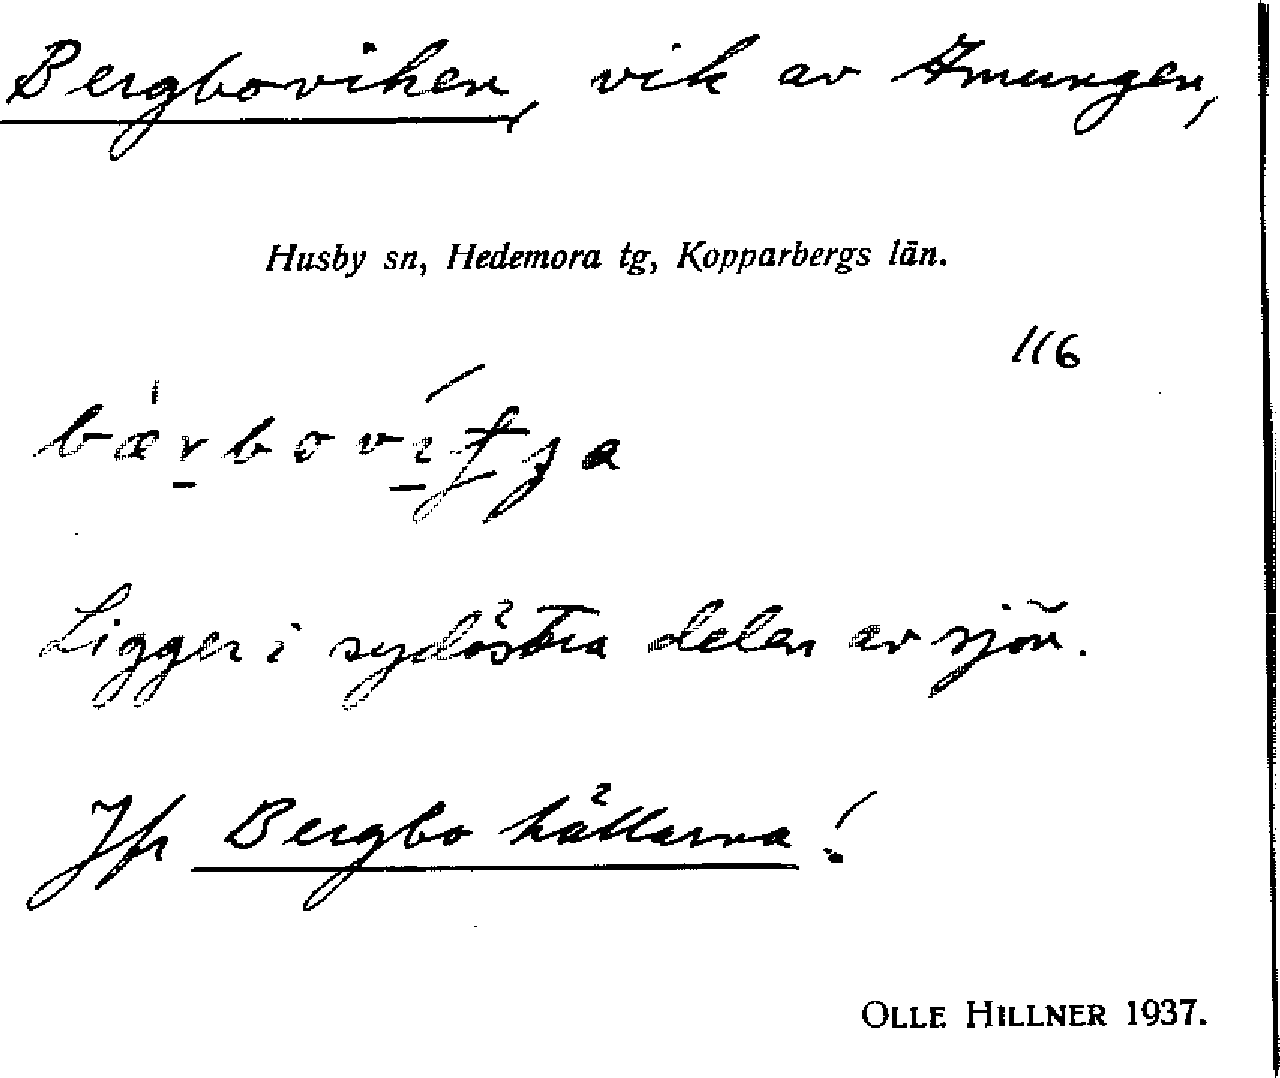 Bergboviken, vik av Amungen,
Husby sn, Hedemora tg, Kopparbergs län.
116
Ligger i sydöstra delen av sjön.
Jfr Bergbo hällarna!
OLLE HILLNER 1937.